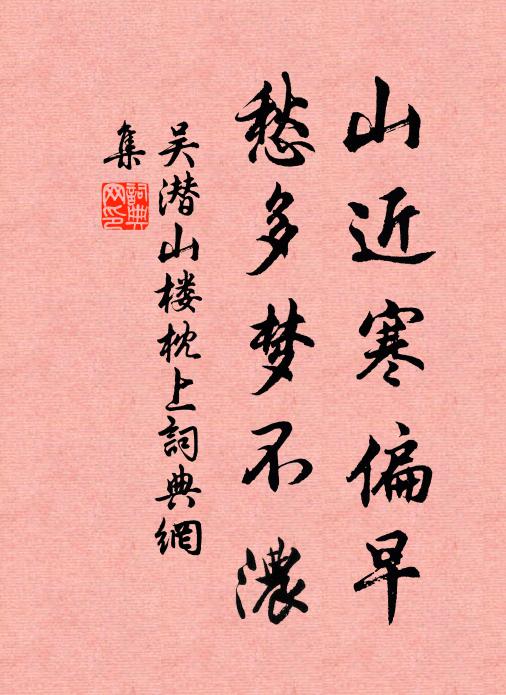 山近寒偏早
愁多梦不濃
吴潜山楼枕上詞典網
集
詞典
网印